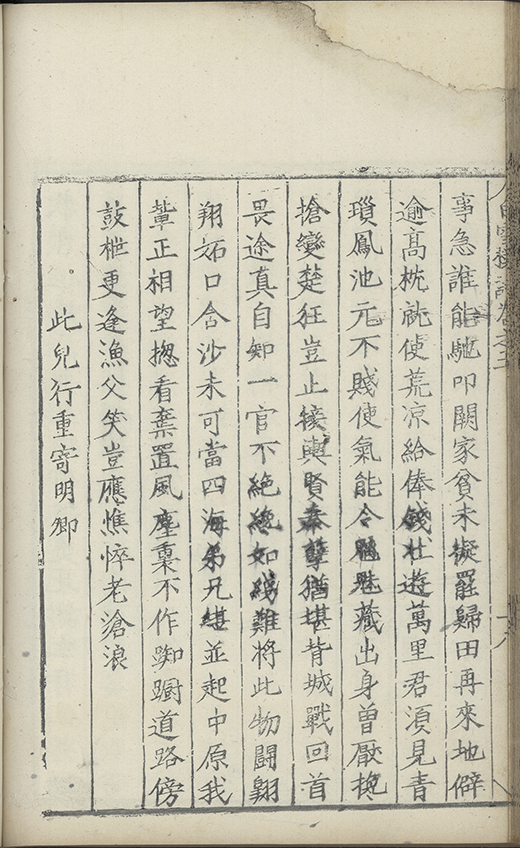 白雪樓詩卷之
十八
事急誰能馳叩闕家貧未擬罷歸田再來地僻
逾高枕就使荒凉給俸錢壯遊萬里君須見青
瑣鳳池元不賤使氣能令魑魅藏出身曾厭攙
搶變楚狂豈止接輿賢秦孽猶堪背城戰回首
畏途真自知一官不絕纔如綫難將此物鬭翺
翔妬口含沙未可當四海弟兄堪並起中原我
軰正相望揔看棄置風塵裏不作踟蹰道路傍
鼓枻更逢漁父笑豈應憔悴老滄浪
此兒行重寄明卿